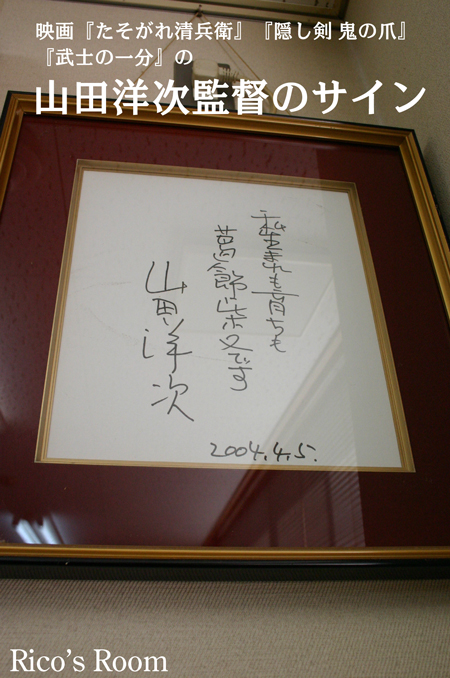 映画『たそがれ清兵衛』『隠し剣 鬼の爪』
『武士の一分』の
山田洋次監督のサイン
私生まれも育ちも
葛飾柴又です
山田洋次
2004.4.5.
Rico's Room